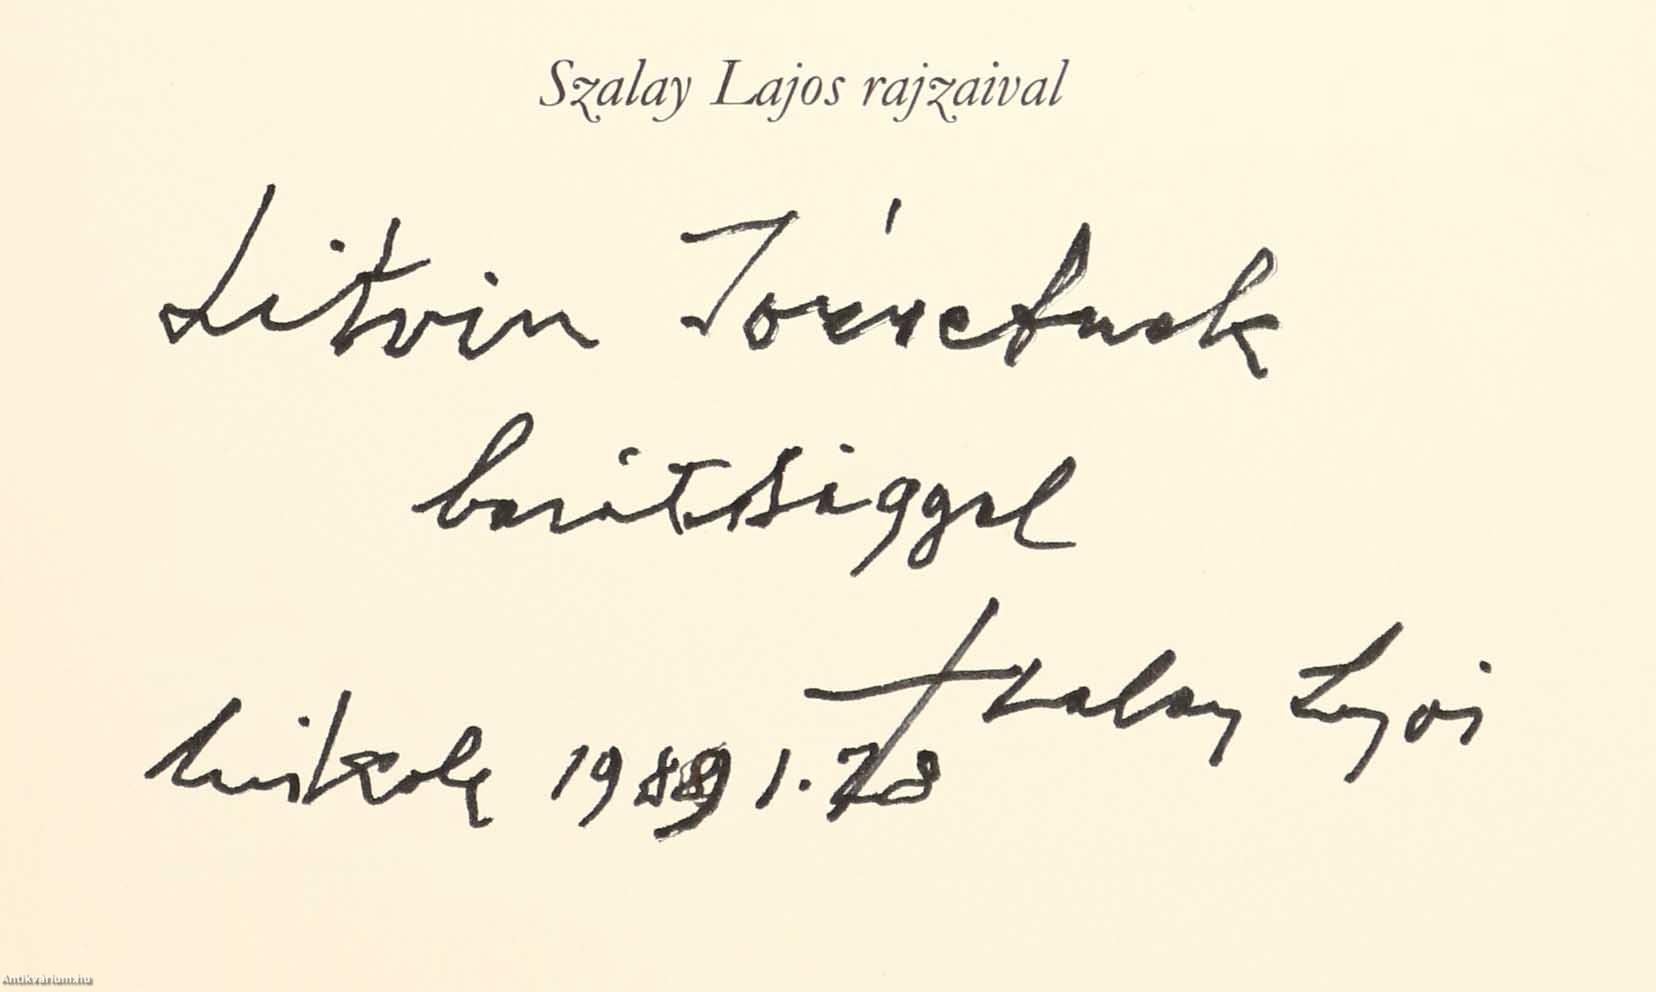 Szalay Lajos rajzaival
Litvin Józsefnek
barátsággal
Szalay Lajos
Miskolc 1989 1. 28
Antikvárium.hu